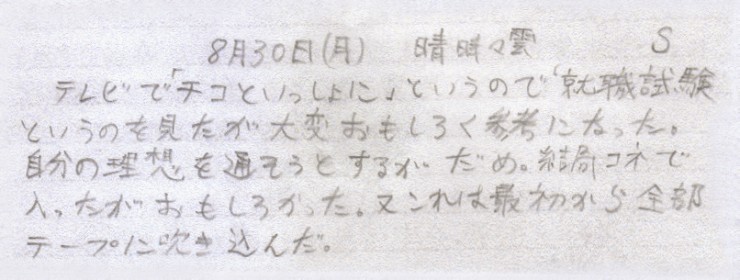 8月30日(月) 晴時々雲 S
テレビで「チコといっしょに」というので「就職試験
というのを見たが大変おもしろく参考になった。
自分の理想を通そうとするがだめ。結局コネで
入ったがおもしろかった。又これは最初から全部
テープに吹き込んだ。